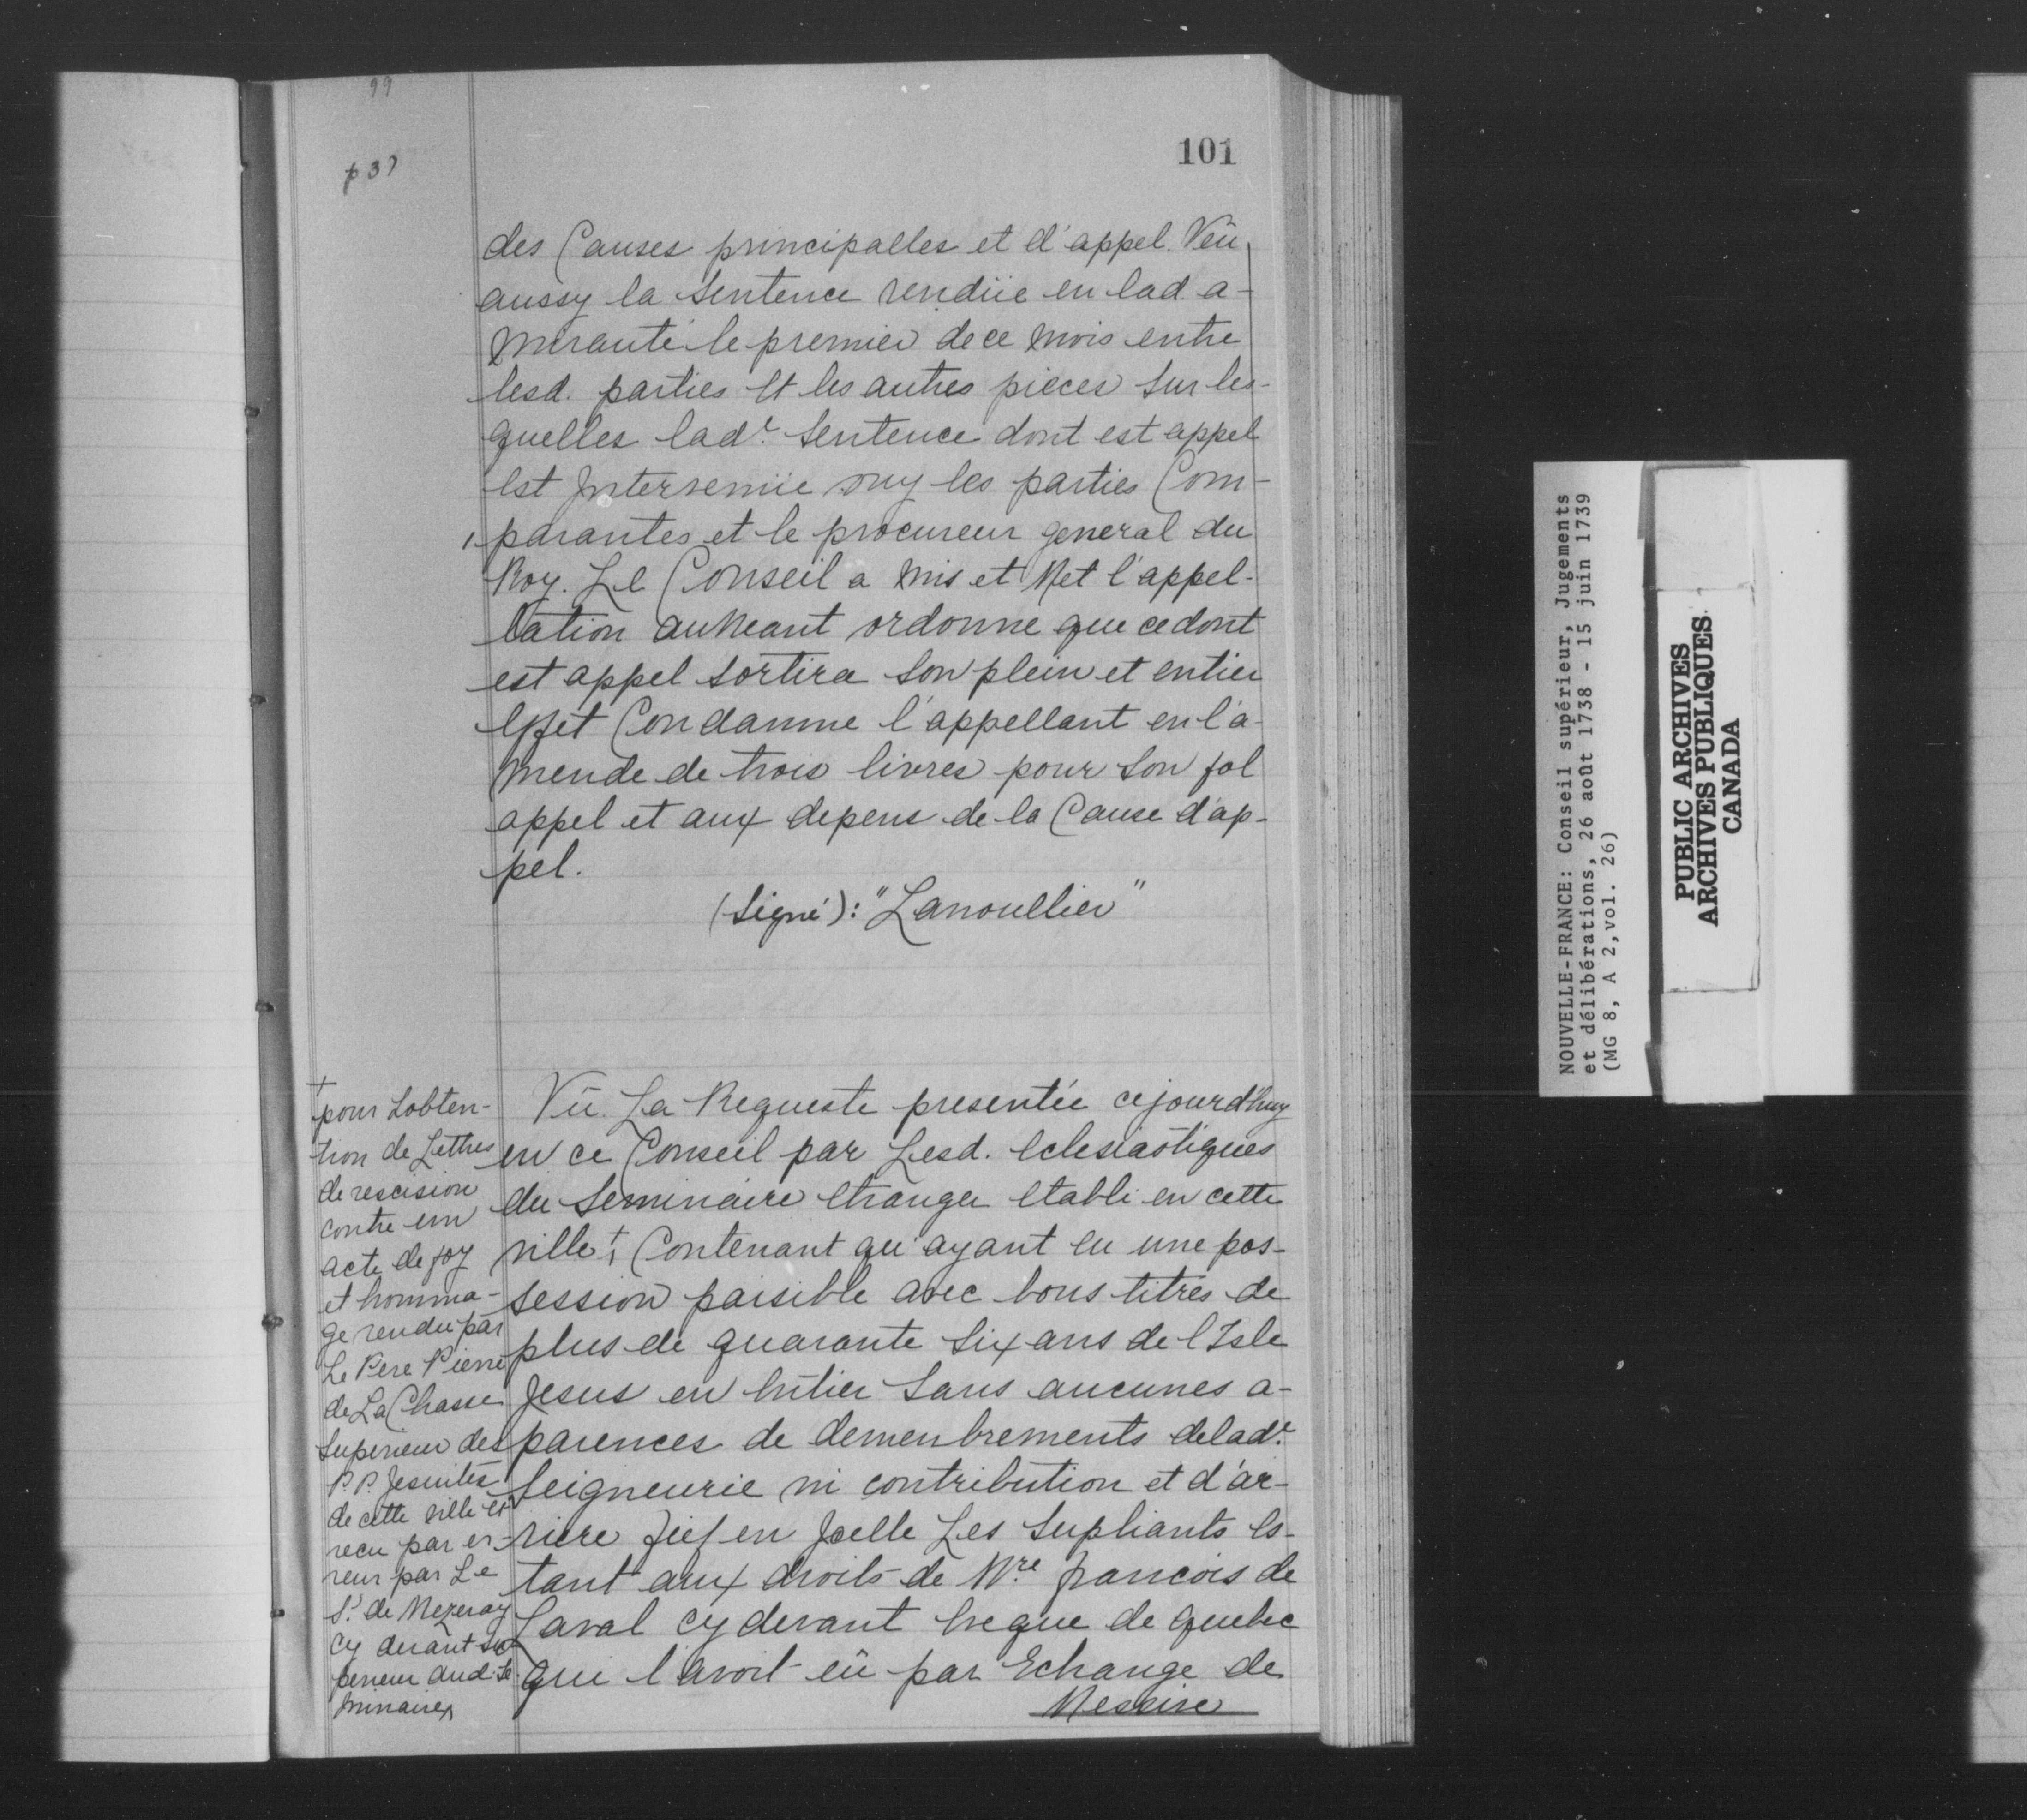 99
p 37
101
des Causes principalles et d'appel. Veu
aussy la Sentence rendüe en lad a-
mirauté le premier de ce mois entre
lesd. parties Et les autres pieces sur les-
quelles lad.e Sentence dont est appel
Est Intervenüe ouy les parties Com-
parantes et le procureur general du
Roy. Le Conseil a Mis et Met l'appel-
lation au Neant ordonne que ce dont
est appel sortira son plein et entier
Effet Condamne l'appellant en l'a-
mende de trois livres pour son fol
appel et aux depens de la Cause d'ap-
pel.
(Signé): "Lanoullier"
Vû La Requeste presentée cejourd'huy
en ce Conseil par Lesd. Eclesiastiques
du Seminaire Etranger Etabli en cette
ville † Contenant qu'ayant eu une pos-
session paisible avec bons titres de
plus de quarante six ans de l'Isle
Jesus en Entier sans aucunes a-
parences de demenbrements delad.e
Seigneurie ni contribution et d'ar-
riere fief en Jcelle Les Supliants Es-
tant aux droits de Mre francois de
Laval cy devant Eveque de quebec
qui l'avoit eü par Echange de
Messire
†
pour Lobten-
tion de Lettres
de rescision
contre un
acte de foy
et homma-
ge rendu par
Le Pere Pierre
de La Chasse
superieur des
P.P. Jesuites
de cette ville et
recu par er-
reur par Le
Sr. de Mezeray
cy devant su-
perieur dud. Se-
minaire
NOUVELLE-FRANCE: Conseil supérieur, Jugements
et délibérations, 26 août 1738 - 15 juin 1739
(MG 8, A 2,vol. 26)
PUBLIC ARCHIVES
ARCHIVES PUBLIQUES
CANADA